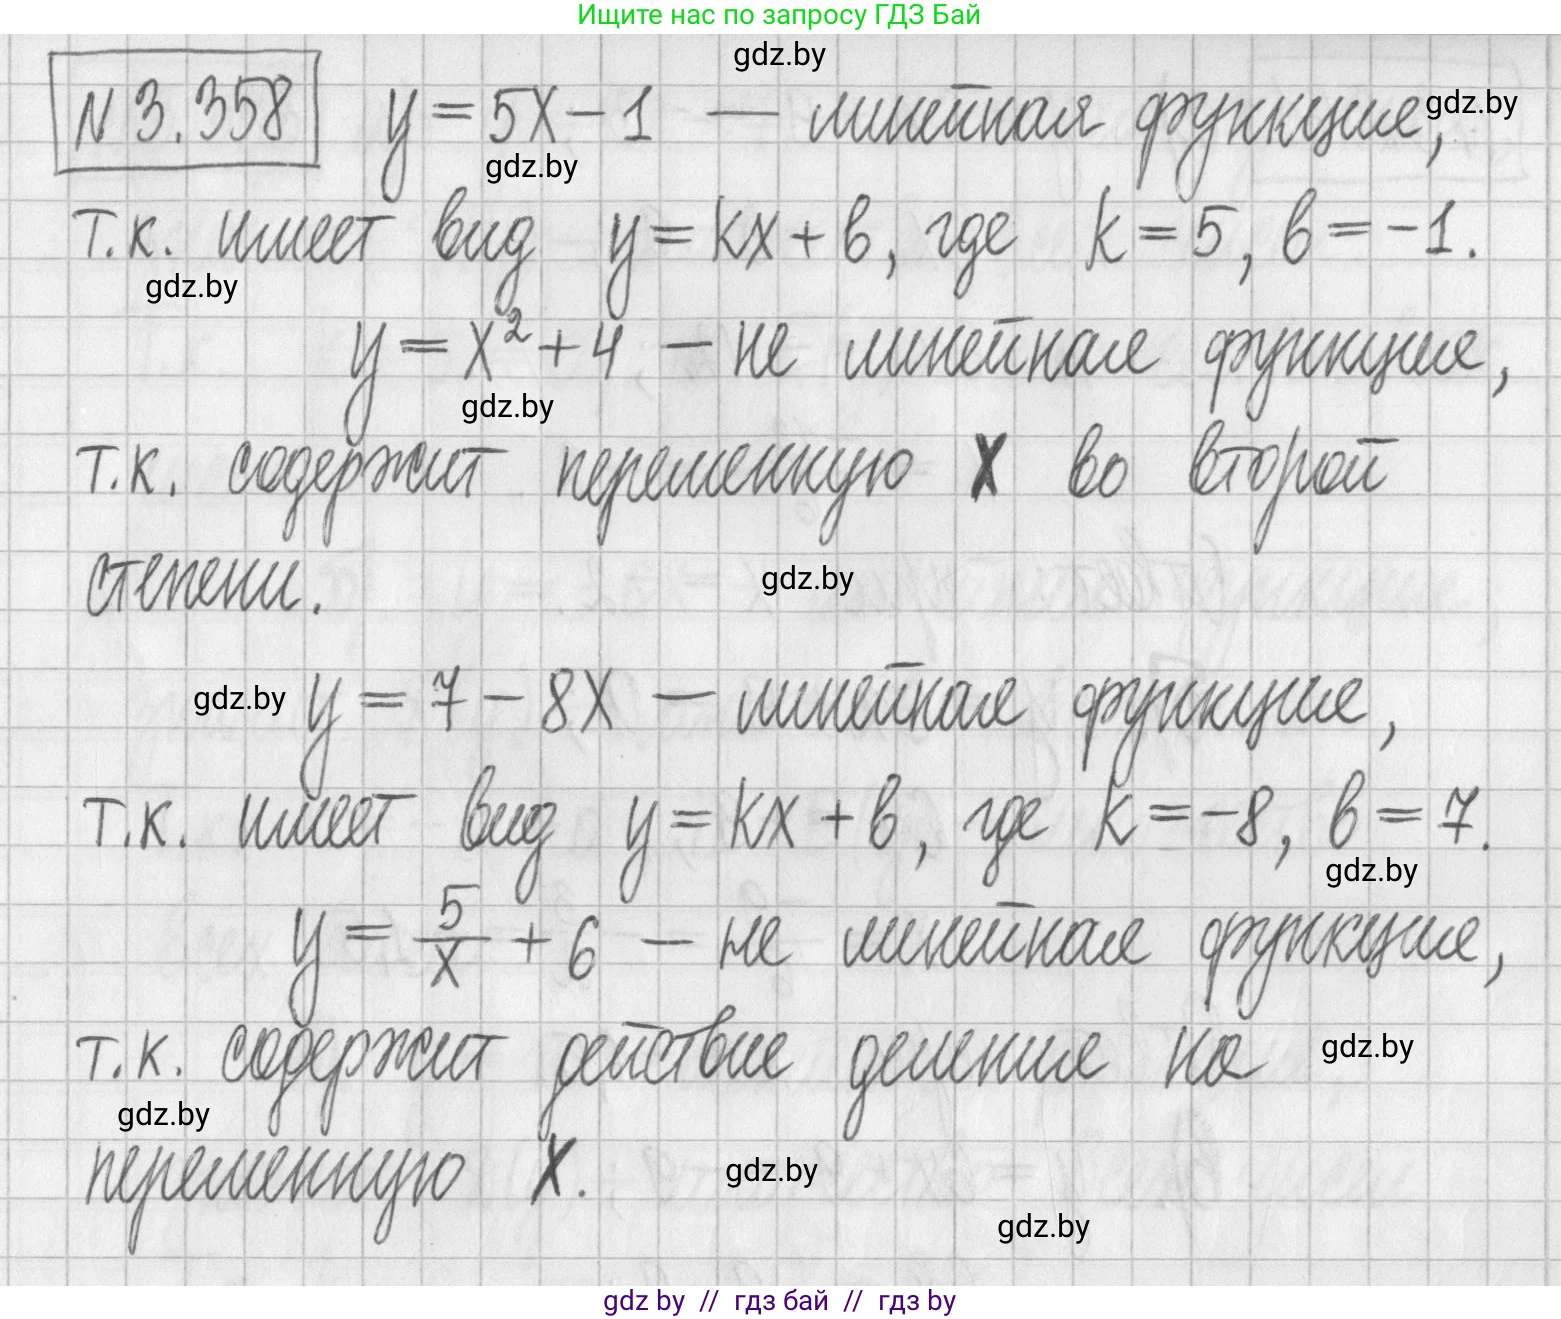 Ищите нас по запросу ГДЗ Бай
gdz.by
N 3.358 y = 5x - 1 — линейная функция, gdz.by
gdz.by
т.к. имеет вид y = kx + b, где k = 5, b = -1.
gdz.by
y = x² + 4 — не линейная функция,
gdz.by
т.к. содержит переменную x во второй
степени. gdz.by
gdz.by y = 7 - 8x — линейная функция,
т.к. имеет вид y = kx + b, где k = -8, b = 7.
gdz.by
y = 5/x + 6 — не линейная функция,
т.к. содержит действие деления на gdz.by
gdz.by
переменную x. gdz.by
gdz.by
gdz by // гдз бай // гдз by